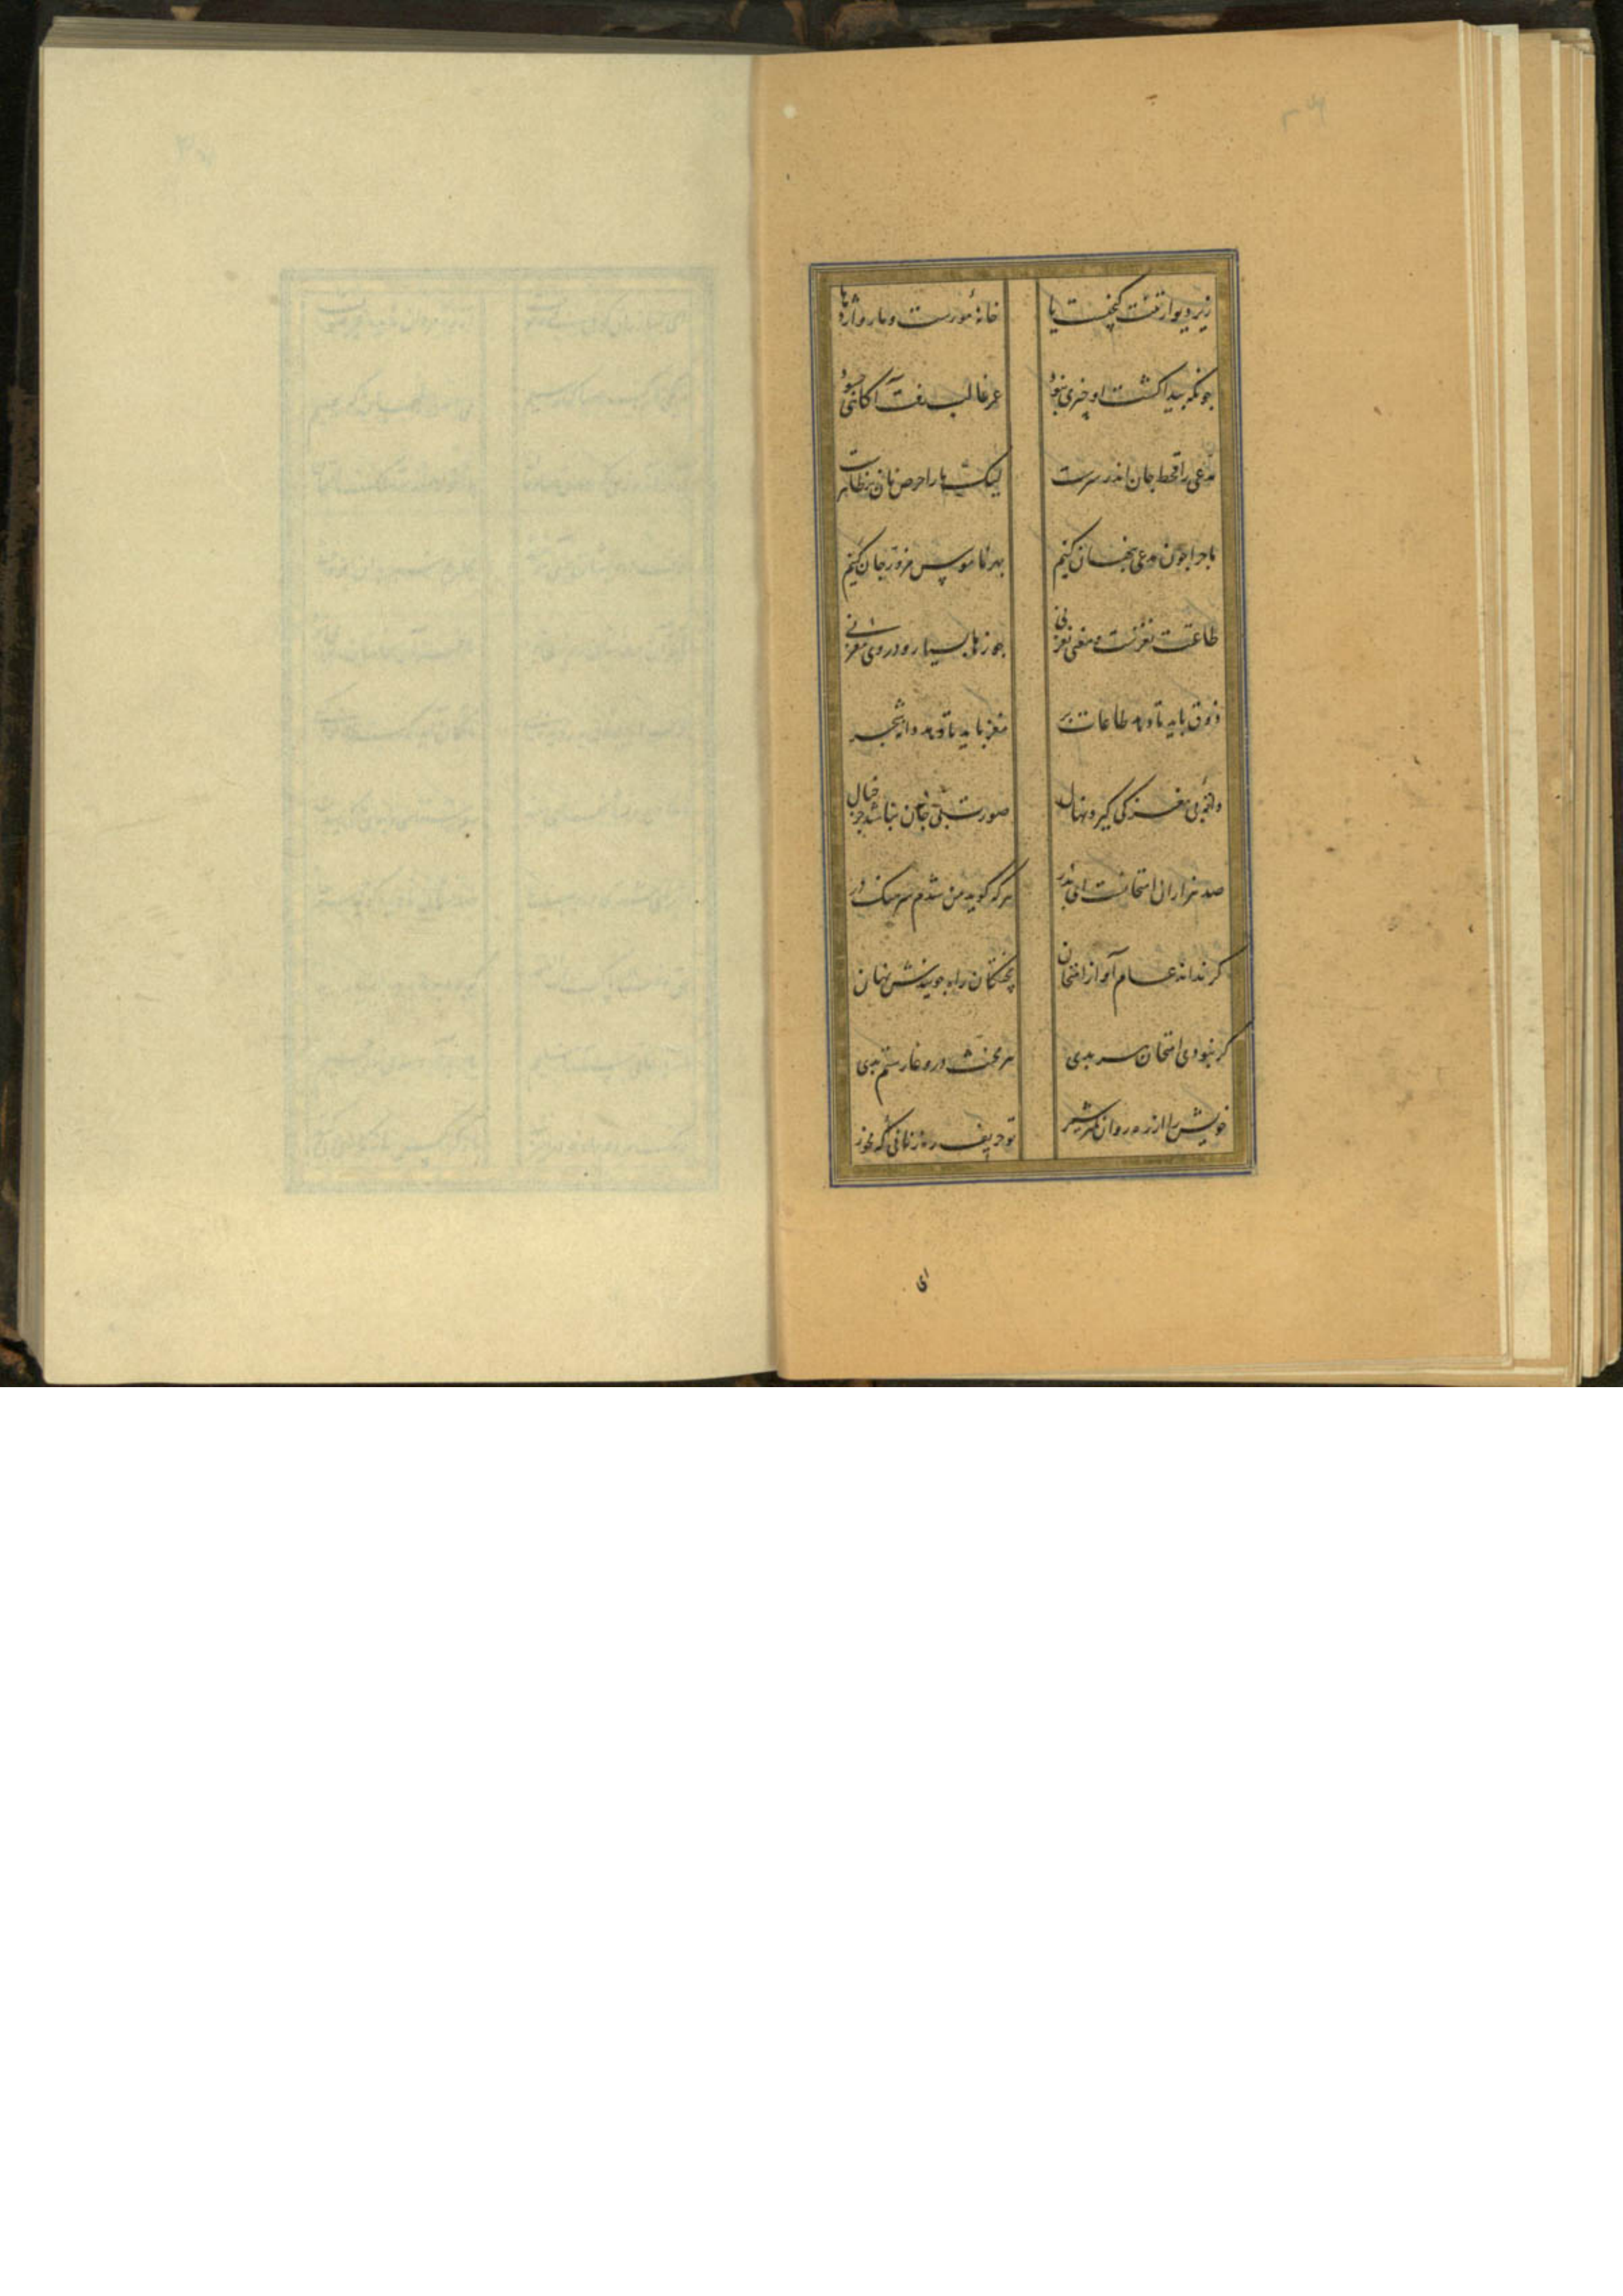 زیر دیوار تنت کنجست یا خانۀ مورست و مار و اژدها
چونکه پیدا کشت او چیزی نبود عمر طالب رفت آکاهی چه سود
مدعی را قحط جان اندر سرست لیک ما را حرص نان بر ظاهرست
ما چرا چون مدعی پنهان کنیم بهر ناموس مزور جان کنیم
طاعتت نغزست و معنی نغز نی جوزها بسیار و در وی مغز نی
ذوق باید تا دهد طاعات بر مغز باید تا دهد دانه شجر
دانۀ بی مغز کی کیرد نهال صورت بی جان نباشد جز خیال
صد هزاران امتحانست ای پدر هر که کوید من شدم سرهنک در
کر نداند عام او را ز امتحان پختکان راه جویندش نهان
کر نبودی امتحان هر بدی هر مخنث در وغا رستم بدی
خویش را از رهروان کمتر شمر تو حریف رهزنانی که مخور
ای